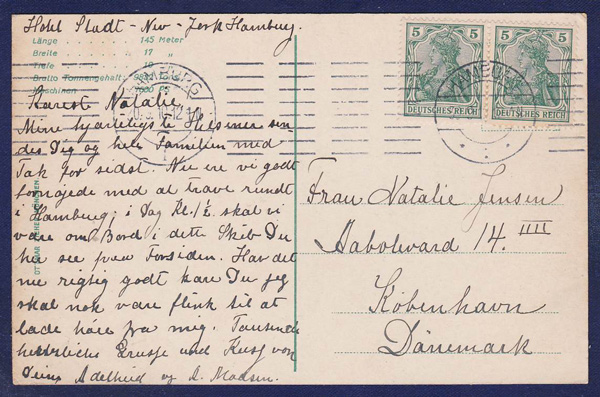 Hotel Stadt - New - York Hamburg.
Länge 145 Meter
Breite 17 "
Tiefe 10 "
Brutto Tonnengehalt:
Maschinen PS
Kæreste Natalie,
Mine hjærteligste Hilsener sen-
des Dig og hele Familien med
Tak for sidst. Nu ere vi godt
fornøjede med at trave rundt
i Hamburg; i Dag Kl. skal vi
være om Bord i dette Skib Du
her ser paa Forsiden. Hav det
nu rigtig godt kære Du jeg
skal nok være flink til at
lade høre fra mig. Tausende
herzliche Grusse und Kuss von
Deine Adelheid og A. Madsen.
5 5
DEUTSCHES REICH DEUTSCHES REICH
HAMBURG
HAMBURG
Frau Natalie Jensen
Aaboulevard 14. IIII
København
Dänemark